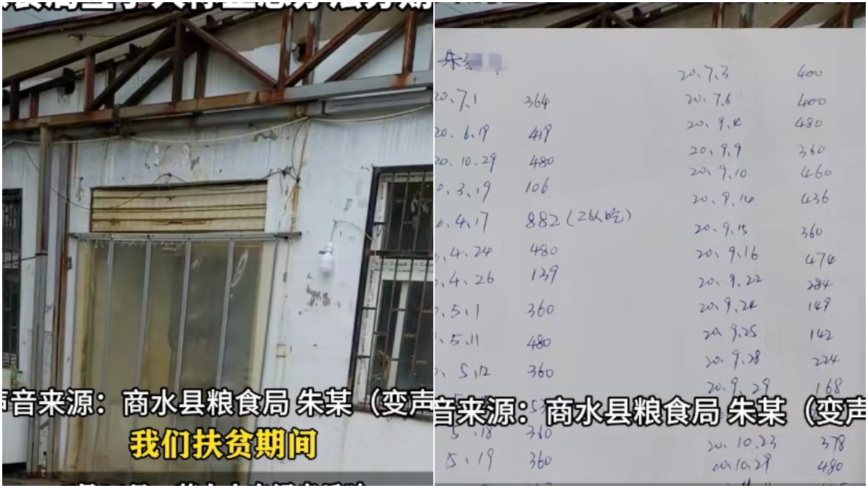 声音来源：商水县粮食局 朱某（变声
我们扶贫期间
朱
20.7.1 364
20.6.19 419
20.10.29 480
0.3.19 106
0.4.17 882（2队吃）
.4.24 480
.4.26 139
.5.1 360
.5.11 480
.5.12 360
5.18 360
5.19 360
20.7.3 400
20.7.6 400
20.9.4 480
20.9.9 360
20.9.10 460
20.9.14 436
20.9.15 360
20.9.16 474
20.9.22 284
20.9.24 149
20.9.25 142
20.9.28 224
20.9.29 168
音来源：商水县粮食局 朱某（变声
20.10.23 378
20.10.29 480